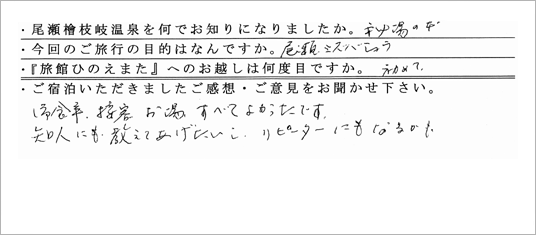 ・尾瀬檜枝岐温泉を何でお知りになりましたか。秘湯の本
・今回のご旅行の目的はなんですか。尾瀬ミズバショウ
・『旅館ひのえまた』へのお越しは何度目ですか。初めて
・ご宿泊いただきましたご感想・ご意見をお聞かせ下さい。
お食事、接客 お湯 すべてよかったです。
知人にも教えてあげたいし、リピーターにもなるかも